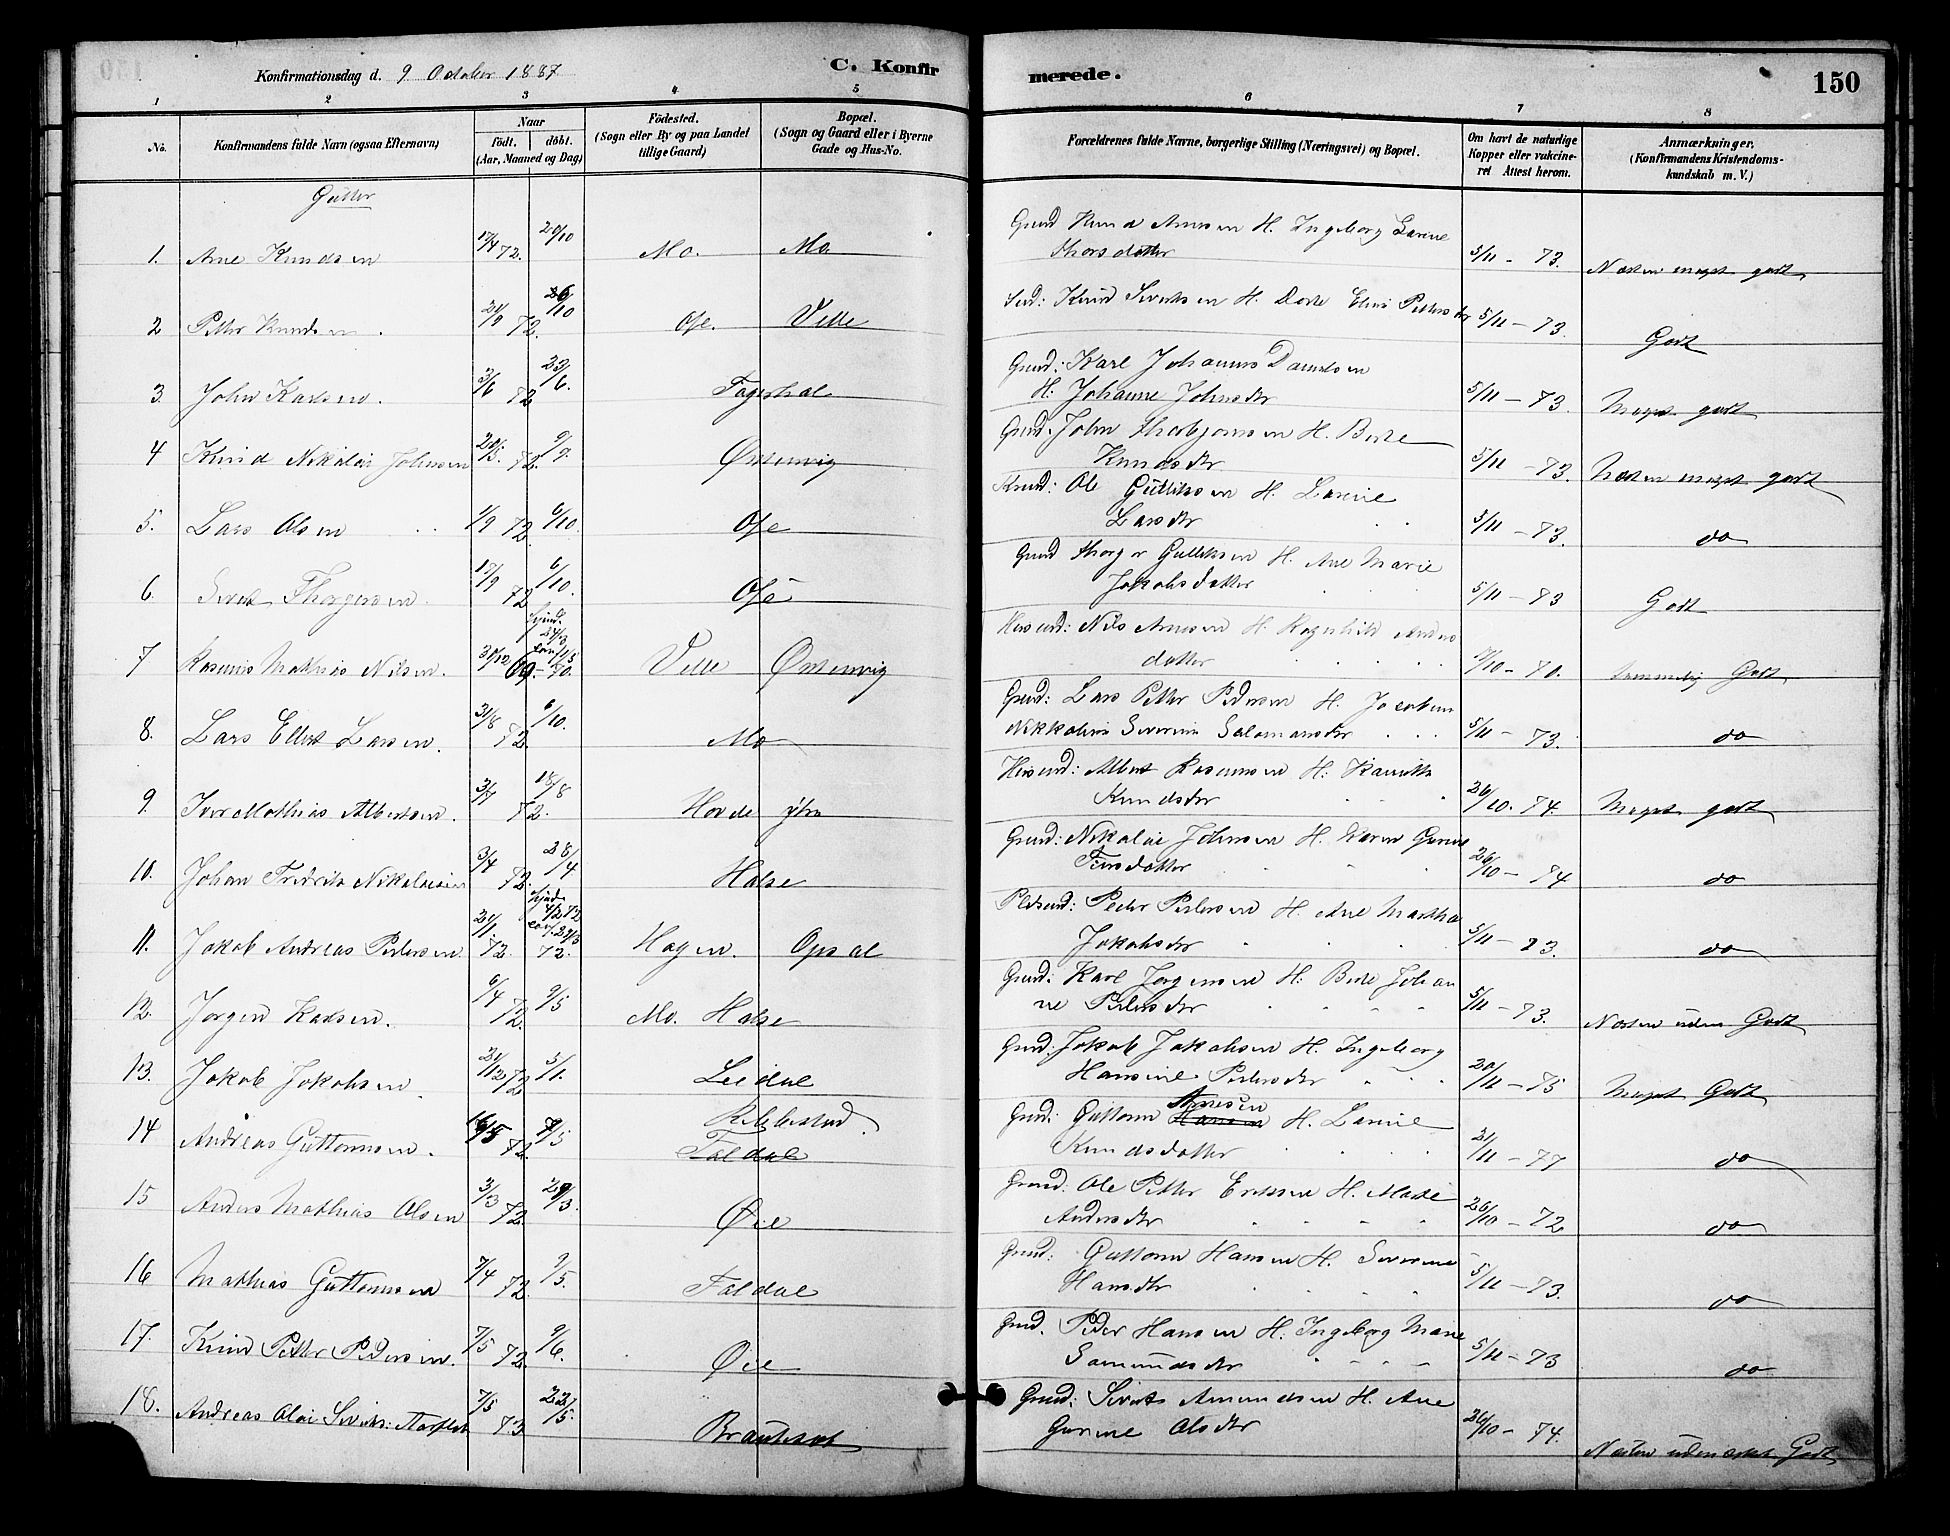 Konfirmationsdag d. 9 October 1887 C. Konfirmerede. 150
1 2 3 4 5 6 7 8
No. Konfirmandens fulde Navn (ogsaa Efternavn) Naar födt. döbt. (Aar, Maaned og Dag) Födested. (Sogn eller By og paa Landet tillige Gaard) Bopæl. (Sogn og Gaard eller i Byerne Gade og Hus-No. Forældrenes fulde Navne, borgerlige Stilling (Næringsvei) og Bopæl. Om havt de naturlige Kopper eller vakcineret Attest herom. Anmærkninger. (Konfirmandens Kristendomskundskab m. V.)
Gutter
1. Arne Knudsen 17/4 72. 20/10 Mo. Mo Grmd Knud Arnesen H. Ingeborg Larine Thorsdatter 5/11 - 73. Næsten meget godt
2 Petter Knudsen. 21/9 72. 26/10 Ose. Velle Knud Sivertsen H. Dorte Elen Petters dtr 5/11 - 73. Godt
3. John Karlsen. 3/6 72 23/6. Fagerhol Grmd: Karl Johannes Danielsen H. Johanne Johnsdtr 5/11 - 73. Meget godt
4 Knud Nikolai Johnsen 20/5. 72. 9/7. Østenvig Grmd. John Thorbjørnsen H. Berte Knudsdr 5/11 - 73. Næsten meget godt
5. Lars Olsen 1/9 72 6/10. Ose Ole Gulliksen H. Larine Larsdtr 5/11 - 73. do
6. Sivert Thorgersen 17/9 72 6/10. Ose Grmd Thorger Gulliksen H. Ane Marie Jakobsdatter 5/11 - 73 Godt
7 Rasmus Mathias Nilsen. 30/12 69. Velle Østenvig Husmd: Nils Arnesen H. Ragnhild Andersdatter /10 - 70. temmelig Godt
8. Lars Ellert Larsen. 31/8 72 6/10. Mo Grmd: Lars Petter Pedersen H. Jacobine Nikkoline Severine Salamonsdtr 5/11 - 73. do
9. Iver Mathias Albertsen. 3/7 72. 18/8 Hovde ytre Husmd: Albert Rasmussen H: Knudsdtr 26/10. 74. Meget godt
10. Johan Fredrik Nikolaisen 3/4 72. 28/4 Halse Grmd: Nikolai Johnsen H. Karen Gurine Finsdatter 26/10 - 74 do
11. Jakob Andreas Pedersen. 21/1. 72. 4/2 72 72. Hagen. Opsal Peder Pedersen H. Ane Martha Jakobsdtr 5/11 - 73. do
12. Jørgen Karlsen. 6/4 72. 9/5 Mo. Halse Grmd: Karl Jørgensen H. Berte Johanne Pedersdtr 5/11 - 73. Næsten uden Godt
13. Jakob Jakobsen. 31/12 72 5/1. Leidal Grmd. Jakob Jakobsen H. Ingeborg Hansine Pedersdtr 20/11 - 75 Meget Godt
14 Andreas Guttormsen. 72. Ribbestad. Foldal Grmd: Guttorm Hansen Arnesen H. Larine Knudsdatter 21/11 - 77 do
15 Anders Mathias Olsen 3/3 72 29/3. Øie Grmd: Ole Petter Eriksen H. Marte Andersdtr 26/10 - 72 do
16 Mathias Guttormsen 7/4 72. 9/5. Foldal Grmd: Guttorm Hansen H. Severine Hansdtr 5/11 - 73. do
17. Knud Petter Pedersen. 7/5 72 9/6. Øie Grmd. Peder Hansen H. Ingeborg Marie Samundsdtr 5/11 - 73 do
18. Andreas Olai Siverts: Aarflot 7/5 73 22/5. Brauteset Grmd: Siverts Amundsen H. Ane Gurine Olsdtr 26/10 - 74. Næsten udmerket Godt